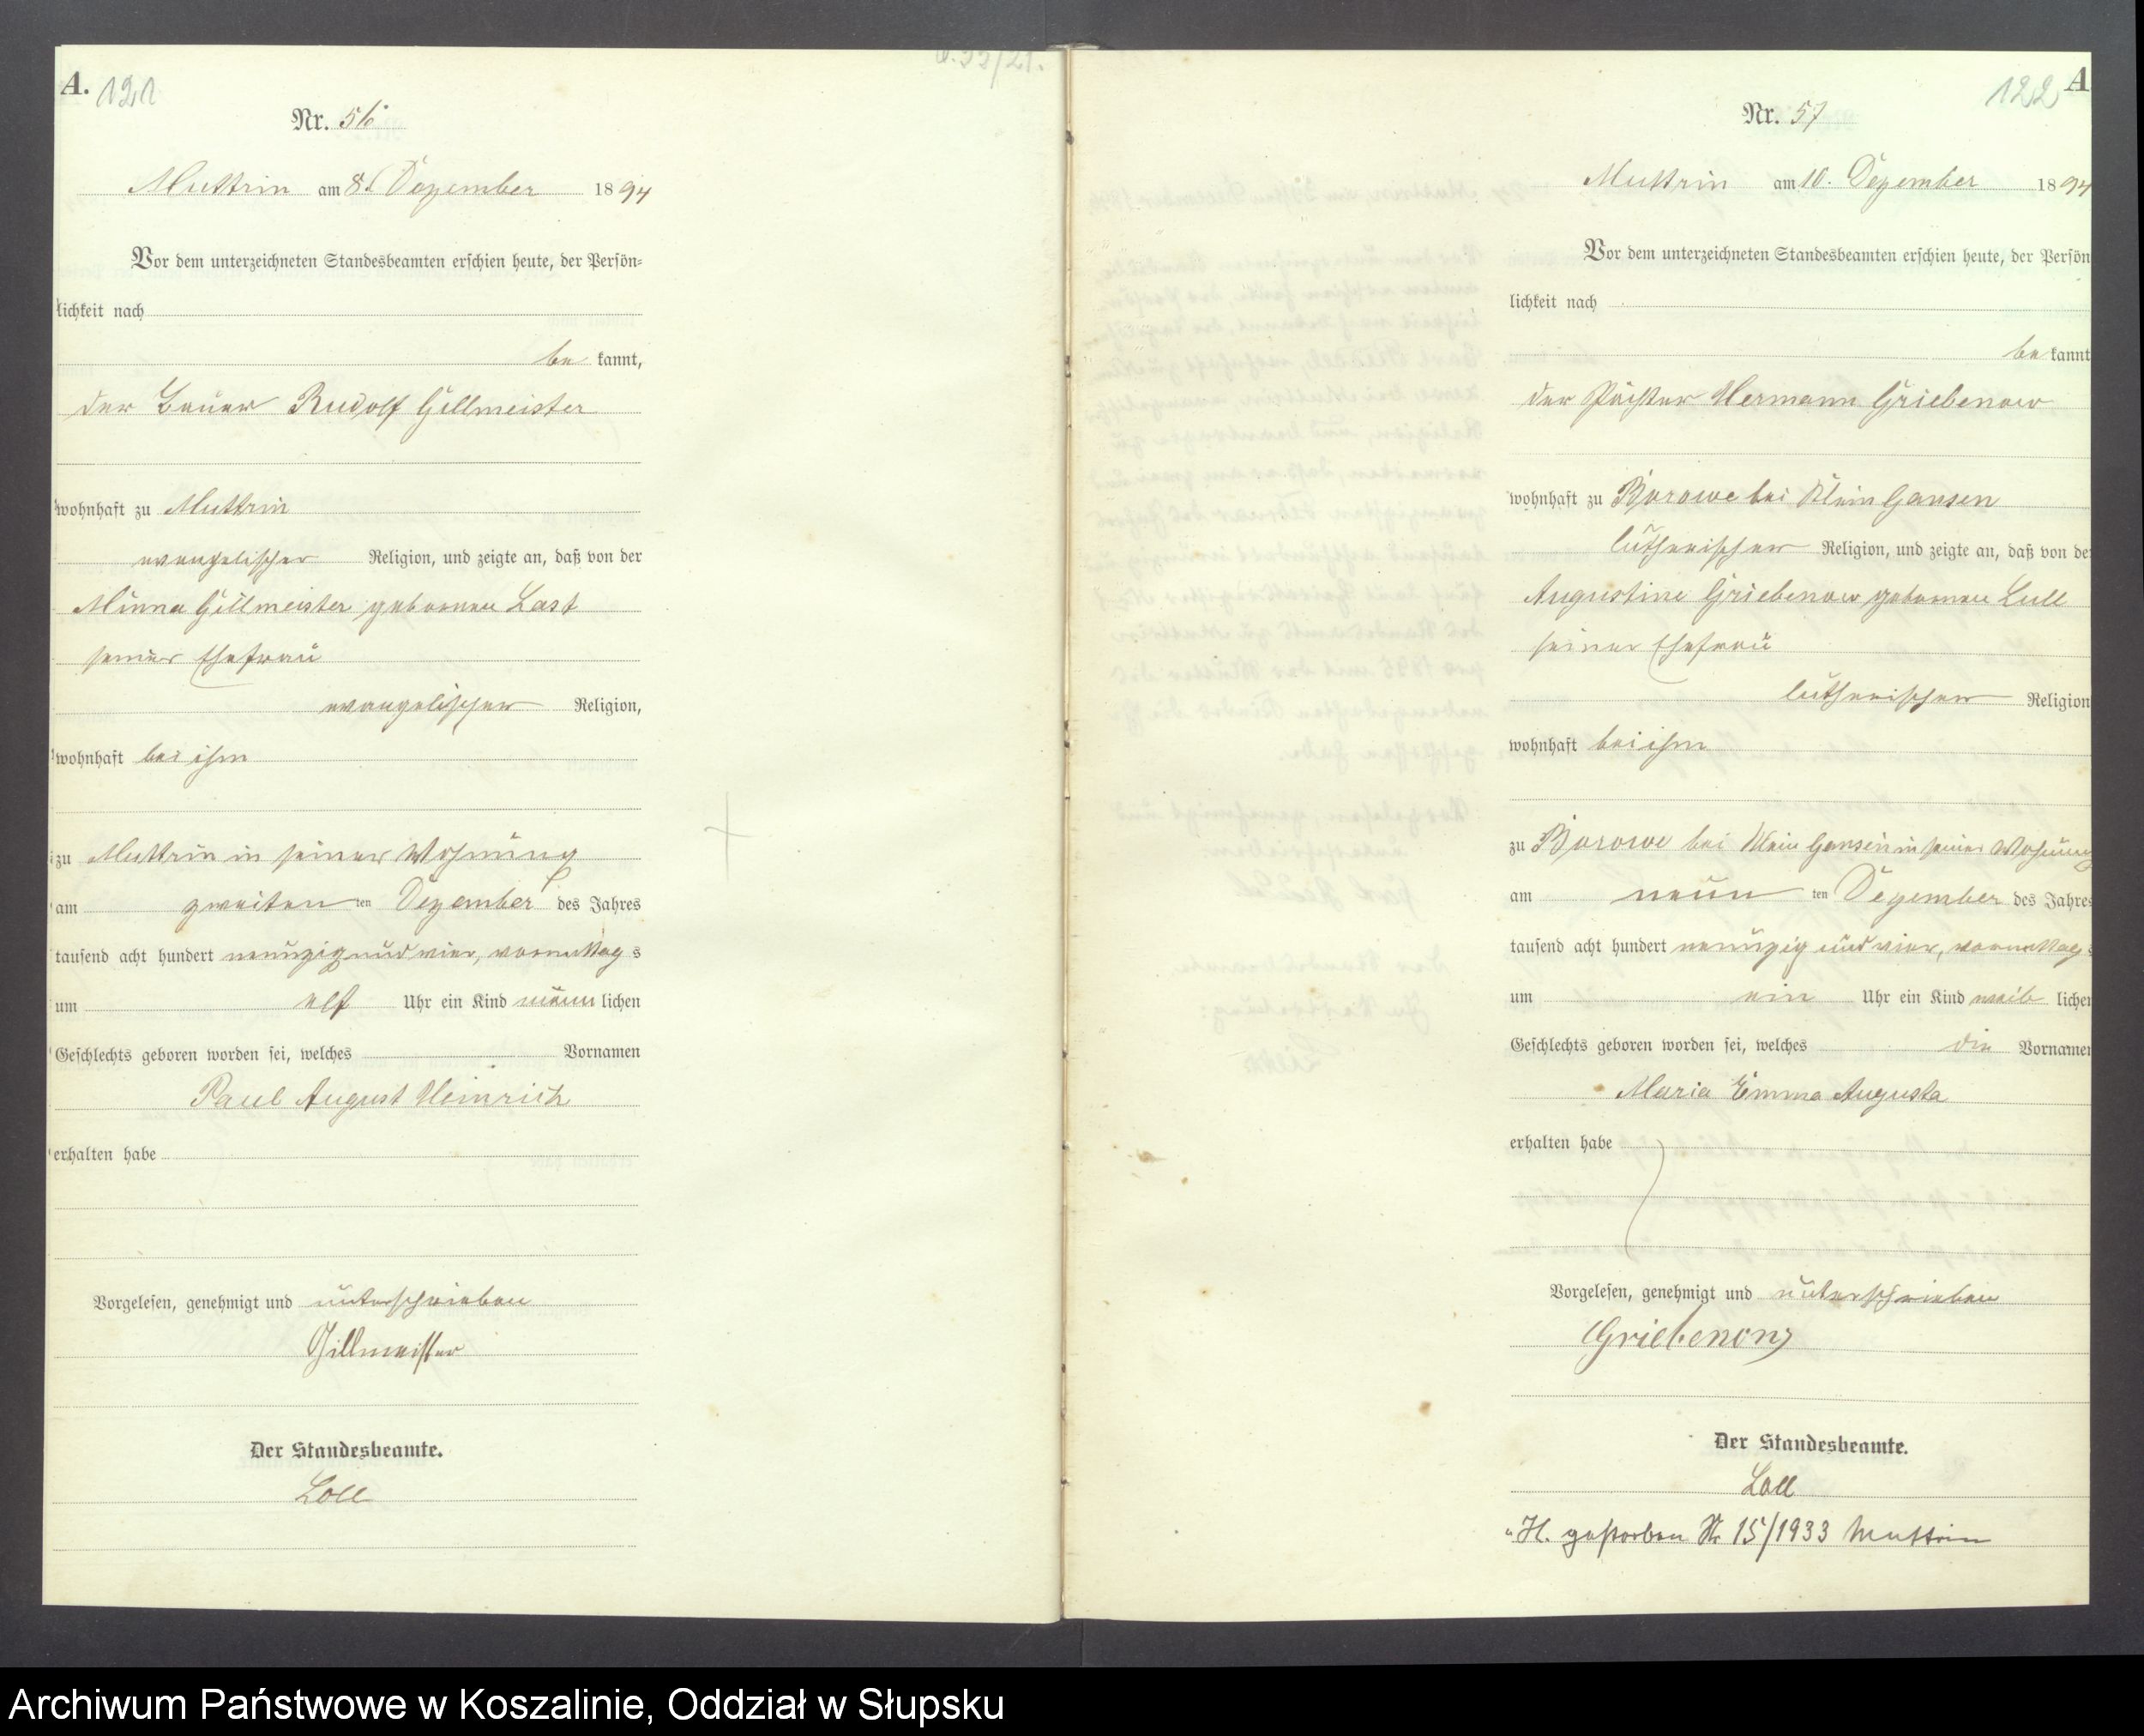 A. 121
Nr. 56
Muttrin am 8. Dezember 1894
Vor dem unterzeichneten Standesbeamten erschien heute, der Persön-
lichkeit nach
be kannt,
der Bauer Rudolf Gillmeister
wohnhaft zu Muttrin
evangelischer Religion, und zeigte an, daß von der
Minna Gillmeister geborenen Last
seiner Ehefrau
evangelischer Religion,
wohnhaft bei ihm
zu Muttrin in seiner Wohnung
am zweiten ten Dezember des Jahres
tausend acht hundert neunzig und vier, vormittag s
um elf Uhr ein Kind männ lichen
Geschlechts geboren worden sei, welches Vornamen
Paul August Heinrich
erhalten habe
Vorgelesen, genehmigt und unterschrieben
Gillmeister
Der Standesbeamte.
Loll
122 A
Nr. 57
Muttrin am 10. Dezember 1894
Vor dem unterzeichneten Standesbeamten erschien heute, der Persön
lichkeit nach
be kannt
der Pächter Hermann Griebenow
wohnhaft zu Borowe bei Klein Gansen
lutherischer Religion, und zeigte an, daß von der
Augustine Griebenow geborenen Lull
seiner Ehefrau
lutherischer Religion
wohnhaft bei ihm
zu Borowe bei Klein Gansen in seiner Wohnung
am neun ten Dezember des Jahres
tausend acht hundert neunzig und vier, vormittag s
um ein Uhr ein Kind weib lichen
Geschlechts geboren worden sei, welches die Vornamen
Maria Emma Augusta
erhalten habe
Vorgelesen, genehmigt und unterschrieben
Griebenow
Der Standesbeamte.
Loll
H. gestorben Nr 15/1933 Muttrin
Archiwum Państwowe w Koszalinie, Oddział w Słupsku